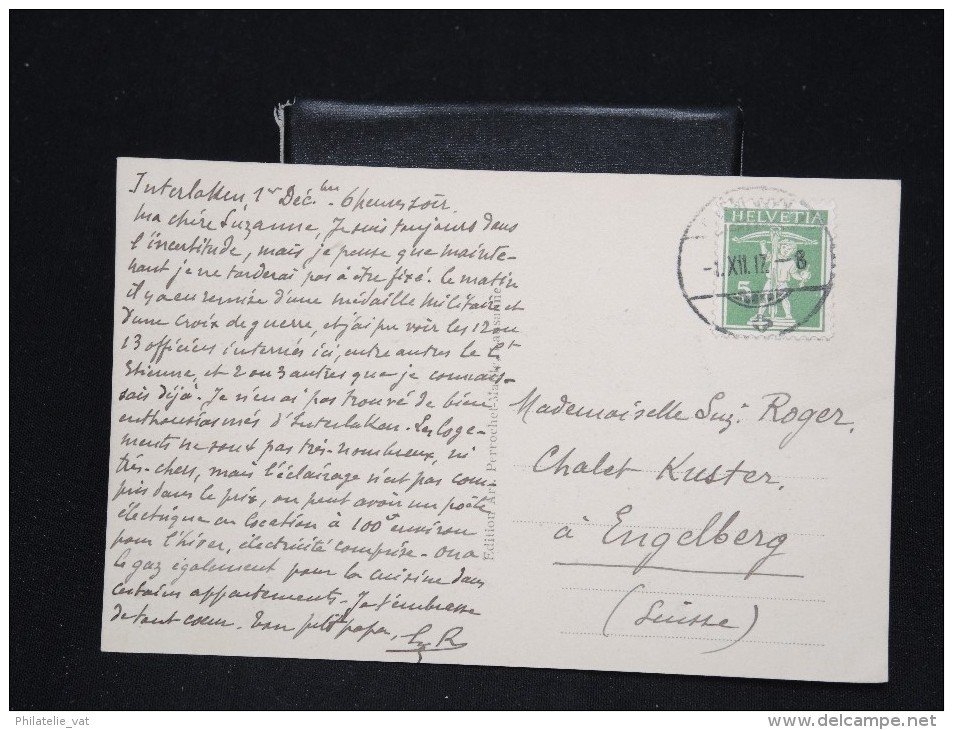 Interlaken, 1er Déc.bre - 6 heures soir.
Ma chère Suzanne, Je suis toujours dans
l'incertitude, mais je pense que mainte-
nant je ne tarderai pas à être fixé. Ce matin
il y a eu remise d'une médaille militaire et
d'une croix de guerre, et j'ai pu voir les 12 ou
13 officiers internés ici, entre autres le Ct
Etienne, et 2 ou 3 autres que je connais-
sais déjà. Je n'en ai pas trouvé de bien
enthousiasmés d'Interlaken. Les loge-
ments ne sont pas très-nombreux, ni
très-chers, mais l'éclairage n'est pas com-
pris dans le prix, on peut avoir un poêle
électrique en location à 100f environ
pour l'hiver, électricité comprise. On a
le gaz également pour la cuisine dans
certains appartements. Je t'embrasse
de tout coeur. Ton petit papa,
Edition Art. Perrochet- Lausanne
HELVETIA
5
-1.XII.17.-8
Mademoiselle Suz. Roger,
Chalet Kuster,
à Engelberg
(Suisse)
Philatelie_vat
www.delcampe.net